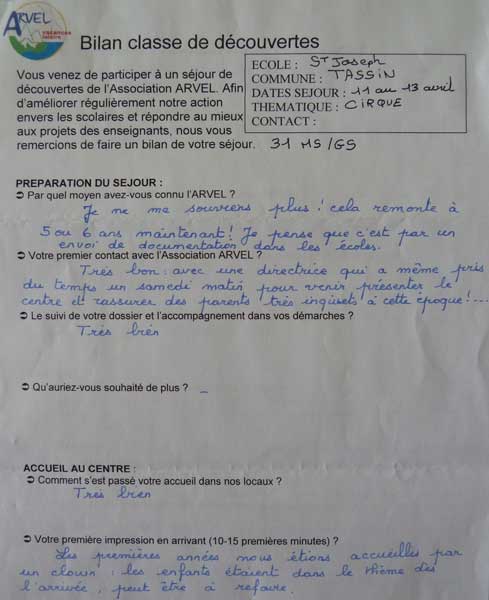 ARVEL
vacances
Bilan classe de découvertes
Vous venez de participer à un séjour de
découvertes de l'Association ARVEL. Afin
d'améliorer régulièrement notre action
envers les scolaires et répondre au mieux
aux projets des enseignants, nous vous
remercions de faire un bilan de votre séjour. 31 MS/GS
ECOLE : St Joseph
COMMUNE : TASSIN
DATES SEJOUR : 11 au 13 avril
THEMATIQUE : CIRQUE
CONTACT :
PREPARATION DU SEJOUR :
➲ Par quel moyen avez-vous connu l'ARVEL ?
Je ne me souviens plus ! cela remonte à
5 ou 6 ans maintenant ! Je pense que c'est par un
envoi de documentation dans les écoles.
➲ Votre premier contact avec l'Association ARVEL ?
Très bon : avec une directrice qui a même pris
du temps un samedi matin pour venir présenter le
centre et rassurer des parents très inquiets à cette époque !...
➲ Le suivi de votre dossier et l'accompagnement dans vos démarches ?
Très bien
➲ Qu'auriez-vous souhaité de plus ? _
ACCUEIL AU CENTRE :
➲ Comment s'est passé votre accueil dans nos locaux ?
Très bien
➲ Votre première impression en arrivant (10-15 premières minutes) ?
Les premières années nous étions accueillis par
un clown : les enfants étaient dans le thème dès
l'arrivée, peut être à refaire.